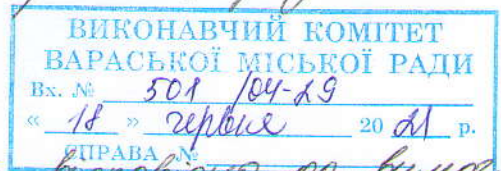 ВИКОНАВЧИЙ КОМІТЕТ
ВАРАСЬКОЇ МІСЬКОЇ РАДИ
Вх. № 501 /04-29
« 18 » червня 20 21 р.
СПРАВА №
відповідно до вимог